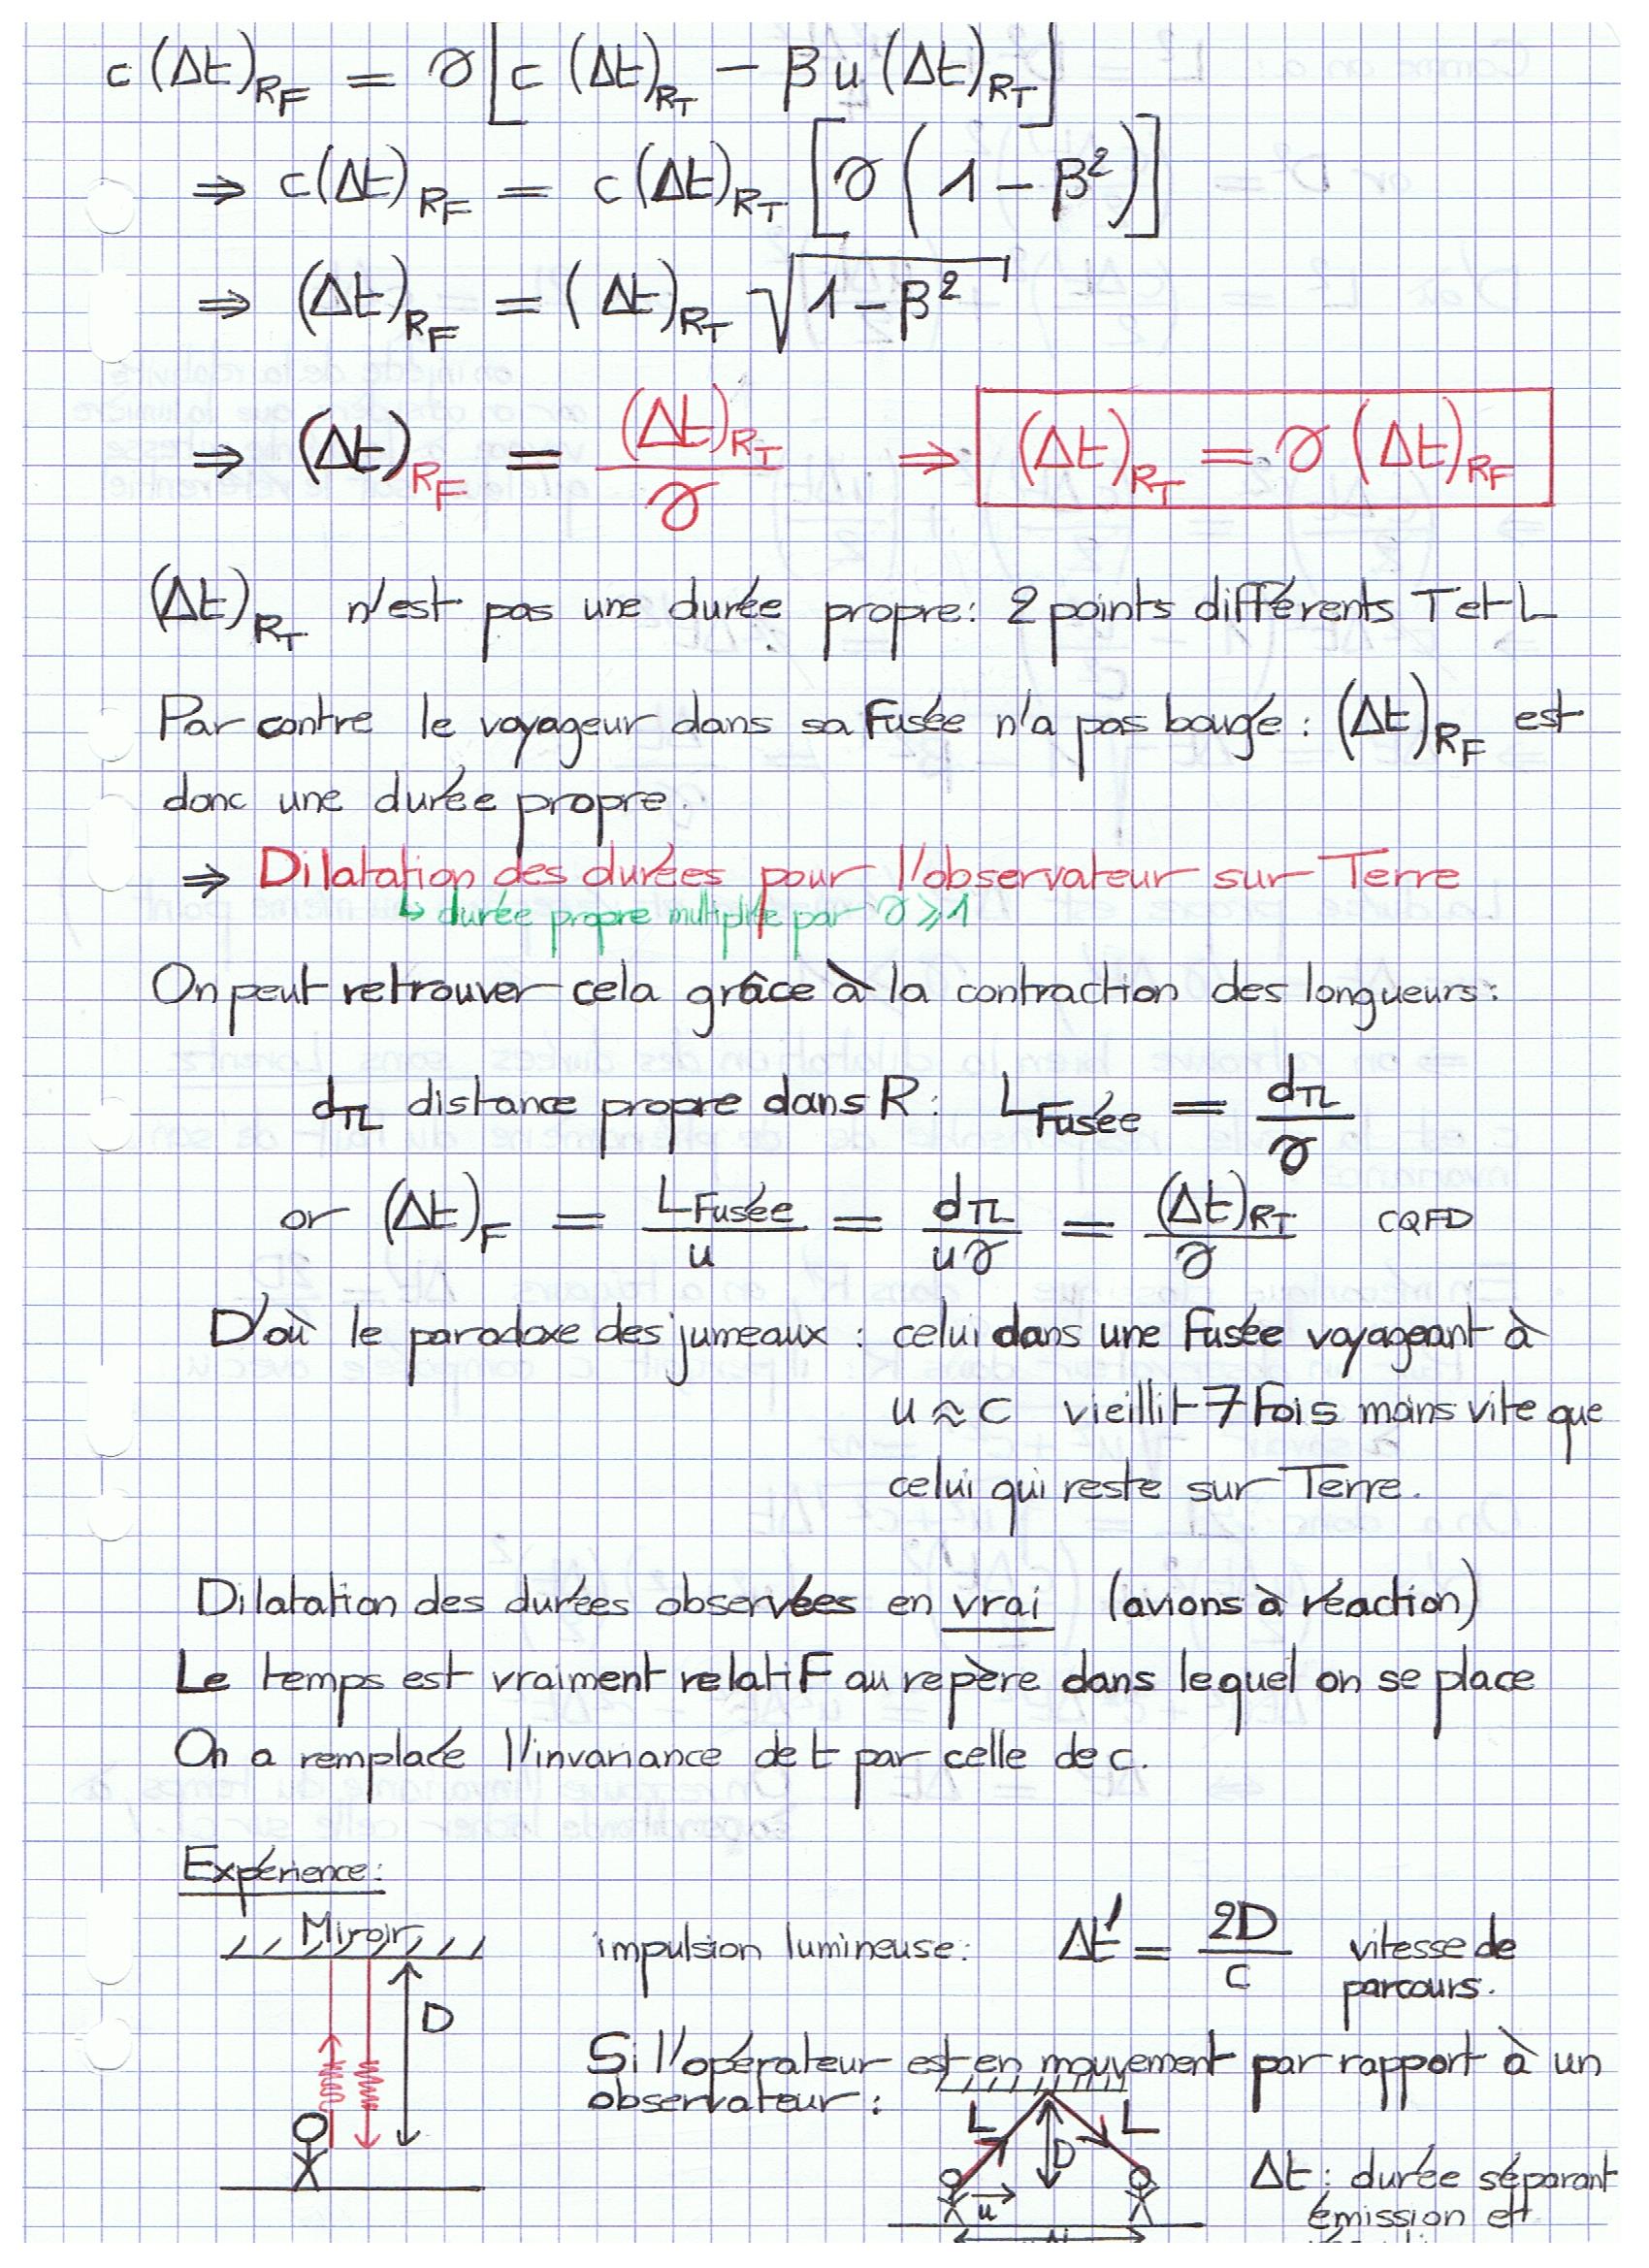 c (Δt)_{R_F} = γ [c (Δt)_{R_T} − β u (Δt)_{R_T}]
⇒ c(Δt)_{R_F} = c(Δt)_{R_T} [γ (1 − β²)]
⇒ (Δt)_{R_F} = (Δt)_{R_T} √(1−β²)
⇒ (Δt)_{R_F} = (Δt)_{R_T} / γ ⇒ (Δt)_{R_T} = γ (Δt)_{R_F}
(Δt)_{R_T} n'est pas une durée propre: 2 points différents T et L
Par contre le voyageur dans sa fusée n'a pas bougé : (Δt)_{R_F} est
donc une durée propre.
⇒ Dilatation des durées pour l'observateur sur Terre
↳ durée propre multipliée par γ ⩾ 1
On peut retrouver cela grâce à la contraction des longueurs:
d_{TL} distance propre dans R: L_{Fusée} = d_{TL} / γ
or (Δt)_F = L_{Fusée} / u = d_{TL} / uγ = (Δt)_{R_T} / γ CQFD
D'où le paradoxe des jumeaux : celui dans une fusée voyageant à
u ≈ c vieillit 7 fois moins vite que
celui qui reste sur Terre.
Dilatation des durées observées en vrai (avions à réaction)
Le temps est vraiment relatif au repère dans lequel on se place
On a remplacé l'invariance de t par celle de c.
Expérience:
Miroir
D
impulsion lumineuse: Δt' = 2D / c vitesse de
parcours.
Si l'opérateur est en mouvement par rapport à un
observateur :
L D L
u
Δt : durée séparant
émission et